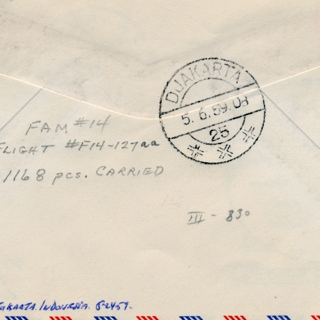 DJAKARTA
5.6.59.08
25
FAM #14
FLIGHT #F14-127aa
1168 pcs. CARRIED
III - 830
JAKARTA. INDONESIA. 6-24 59.